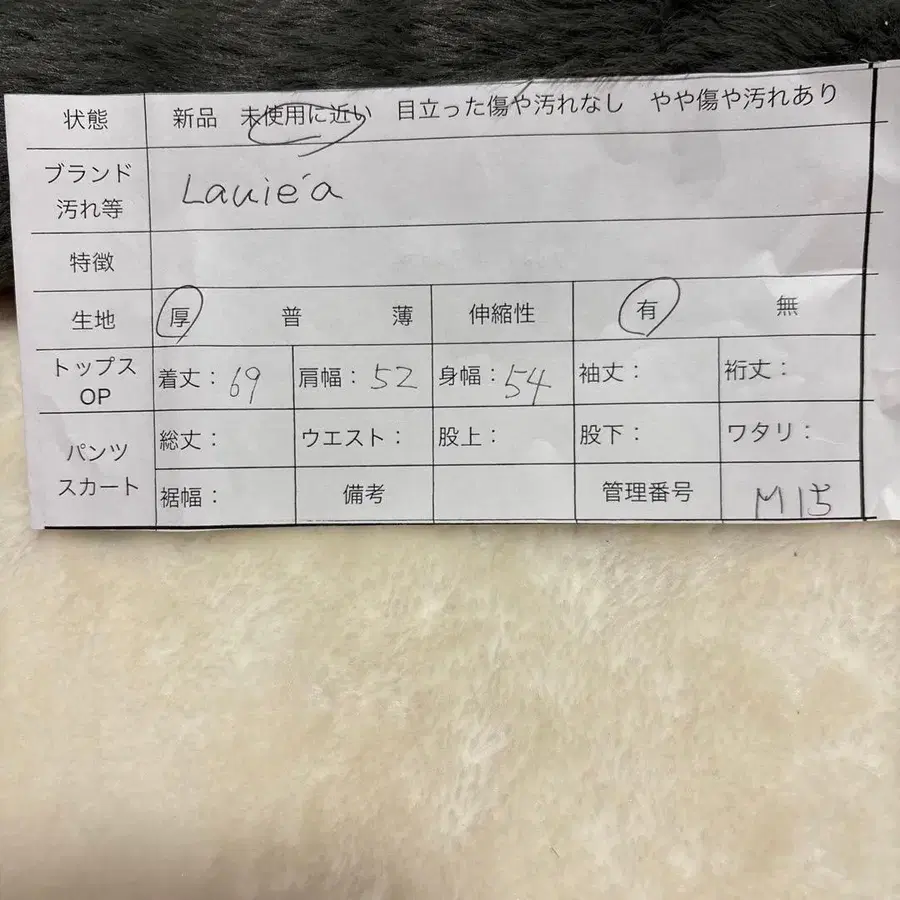 状態 新品 未使用に近い 目立った傷や汚れなし やや傷や汚れあり
ブランド
汚れ等 Lauie'a
特徴
生地 厚 普 薄 伸縮性 有 無
トップス
OP 着丈：69 肩幅：52 身幅：54 袖丈： 裄丈：
パンツ
スカート
総丈： ウエスト： 股上： 股下： ワタリ：
裾幅： 備考 管理番号 M15